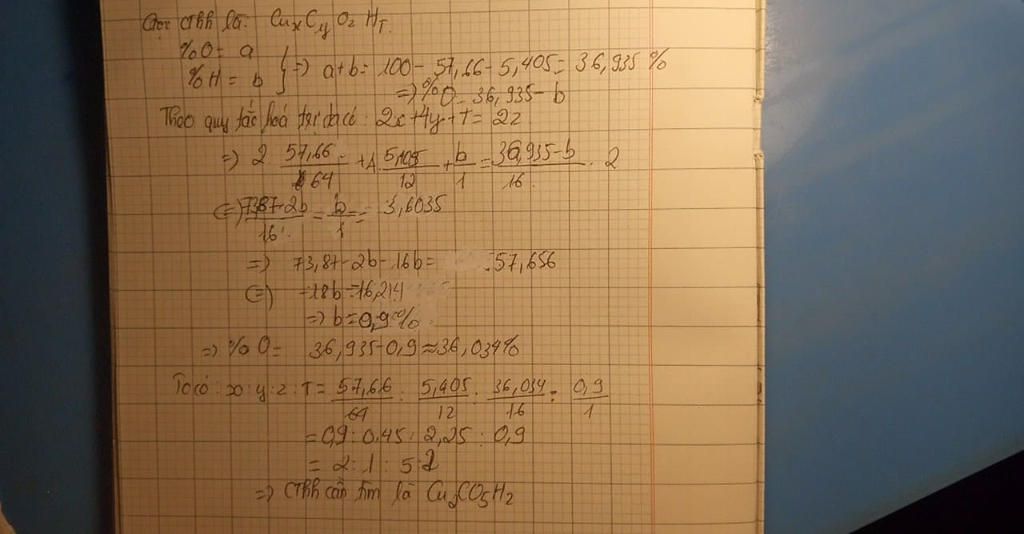 Gọi CTHH là: CuxCyOzHT
%O = a
%H = b } => a+b = 100 - 57,66 - 5,405 = 36,935 %
=> %O = 36,935 - b
Theo quy tắc hoá trị ta có: 2x+4y+T = 2z
=> 2 57,66/64 + 4 5,405/12 + b/1 = 36,935-b/16 . 2
(=) 73,87-2b/16 - b/1 = 3,6035
=> 73,87-2b-16b = 57,656
(=) -18b = 16,214
=> b = 0,9%
=> %O = 36,935-0,9 ≈ 36,034%
Ta có: x:y:z:T = 57,66/64 : 5,405/12 : 36,034/16 : 0,9/1
= 0,9 : 0,45 : 2,25 : 0,9
= 2 : 1 : 5 : 2
=> CTHH cần tìm là Cu2CO5H2